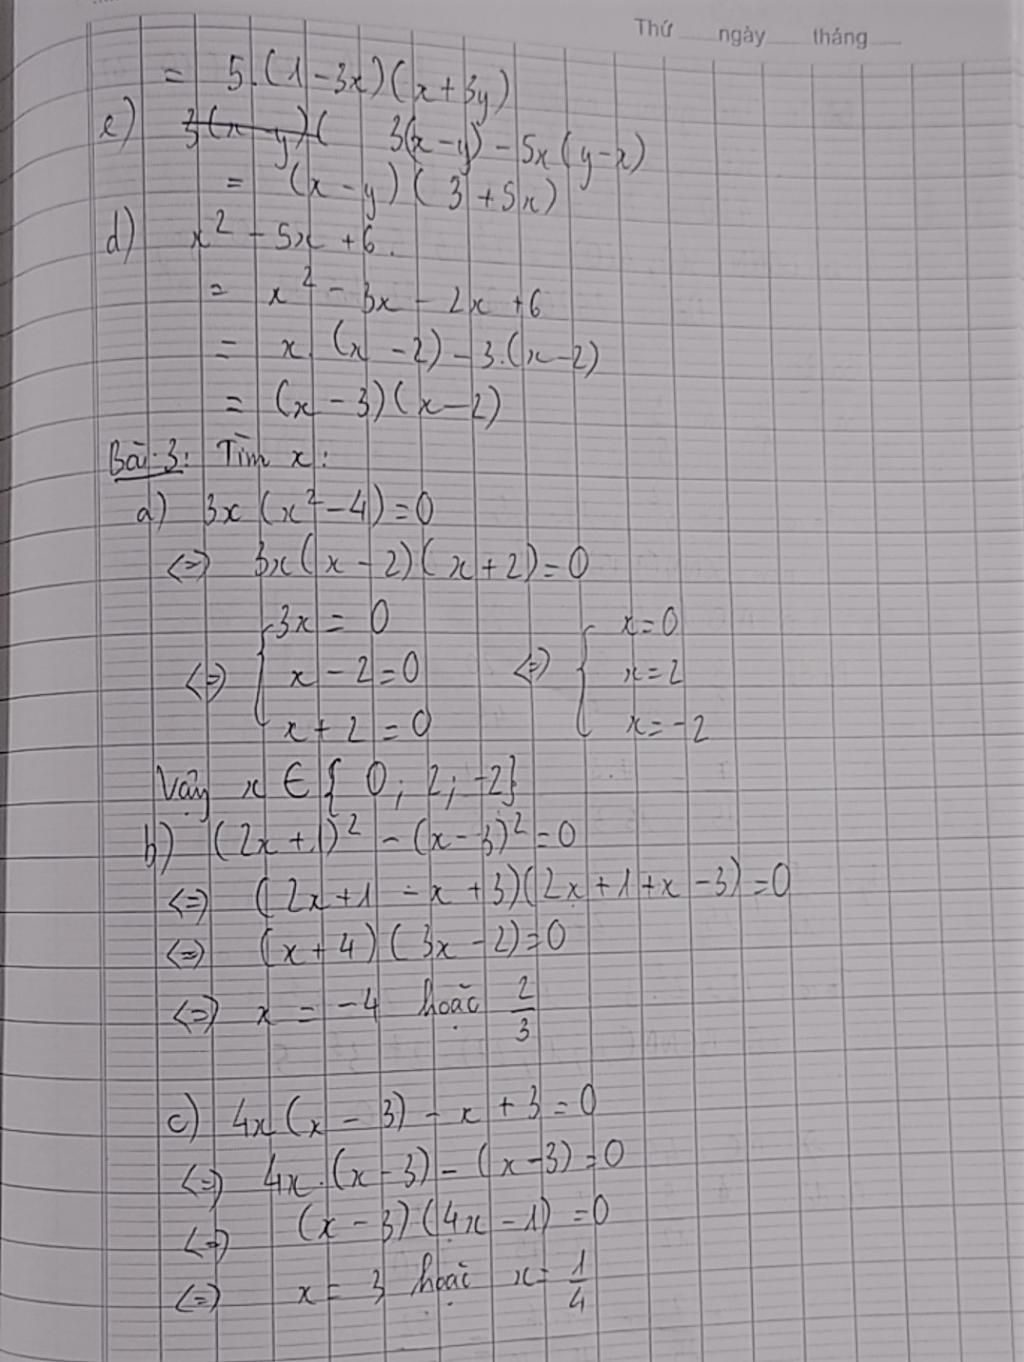 Thứ ngày tháng
= 5.(1-3x)(x+3y)
e) 3(x-y)( 3(x-y) - 5x(y-x)
= (x-y)(3+5x)
d) x² - 5x + 6.
= x² - 3x - 2x + 6
= x.(x-2) - 3.(x-2)
= (x-3)(x-2)
Bài 3: Tìm x:
a) 3x(x²-4)=0
<=> 3x(x-2)(x+2)=0
<=> { 3x = 0 <=> { x=0
x-2=0 x=2
x+2=0 x=-2
Vậy x ∈ { 0; 2; -2}
b) (2x+1)² - (x-3)² = 0
<=> (2x+1 - x+3)(2x+1+x-3)=0
<=> (x+4)(3x-2)=0
<=> x = -4 hoặc 2/3
c) 4x(x-3) - x + 3 = 0
<=> 4x.(x-3) - (x-3) = 0
<=> (x-3)(4x-1) = 0
<=> x = 3 hoặc x = 1/4